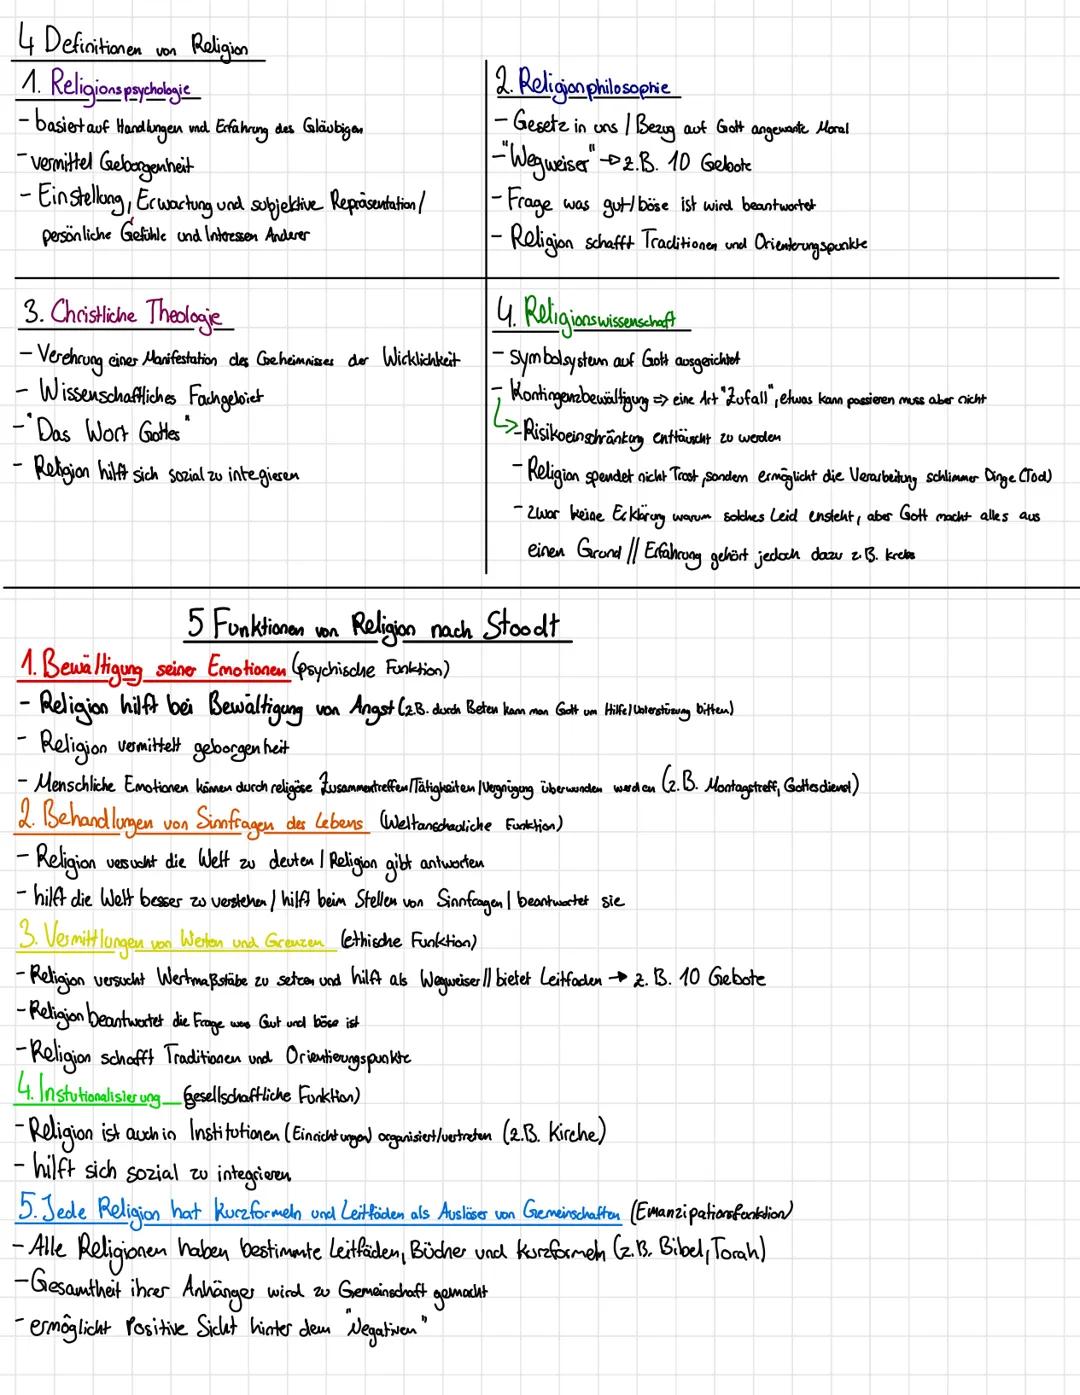 4 Definitionen von Religion
1. Religionspsychologie
- basiert auf Handlungen und Erfahrung des Gläubigen
- vermittel Geborgenheit
- Einstellung, Erwartung und subjektive Repräsentation /
persönliche Gefühle und Interessen Anderer
2. Religionphilosophie
- Gesetz in uns / Bezug auf Gott angewante Moral
- "Wegweiser" → z.B. 10 Gebote
- Frage was gut/böse ist wird beantwortet
- Religion schafft Traditionen und Orienterungspunkte
3. Christliche Theologie
- Verehrung einer Manifestation des Geheimnisses der Wicklichkeit
- Wissenschaftliches Fachgebiet
- "Das Wort Gottes"
- Religion hilft sich sozial zu integrieren
4. Religionswissenschaft
- Symbolsystem auf Gott ausgerichtet
- Kontingenzbewältigung => eine Art "Zufall", etwas kann passieren muss aber nicht
↳ - Risikoeinschränkung enttäuscht zu werden
- Religion spendet nicht Trost, sondern ermöglicht die Verarbeitung schlimmer Dinge (Tod)
- zwar keine Ecklärung warum solches Leid ensteht, aber Gott macht alles aus
einen Grund // Erfahrung gehört jedoch dazu z.B. krebs
5 Funktionen von Religion nach Stoodt
1. Bewältigung seiner Emotionen (psychische Funktion)
- Religion hilft bei Bewältigung von Angst (z.B. durch Beten kann man Gott um Hilfe/Unterstüzung bitten)
- Religion vermittelt geborgenheit
- Menschliche Emotionen können durch religöse Zusammentreffen/Tätigkeiten/Vergnügung überwunden werden (z.B. Montagstreff, Gottesdienst)
2. Behandlungen von Sinnfragen des Lebens (Weltanschauliche Funktion)
- Religion versucht die Welt zu deuten / Religion gibt antworten
- hilft die Welt besser zu verstehen / hilft beim Stellen von Sinnfragen / beantwortet sie
3. Vermittlungen von Werten und Grenzen (ethische Funktion)
- Religion versucht Wertmaßstäbe zu setzen und hilft als Wegweiser // bietet Leitfaden → z.B. 10 Gebote
- Religion beantwortet die Frage was Gut und böse ist
- Religion schafft Traditionen und Orientierungspunkte
4. Instutionalisierung (gesellschaftliche Funktion)
- Religion ist auch in Institutionen (Einrichtungen) organisiert/vertreten (z.B. Kirche)
- hilft sich sozial zu integrieren
5. Jede Religion hat kurzformeln und Leitfäden als Auslöser von Gemeinschaften (Emanzipationsfunktion)
- Alle Religionen haben bestimmte Leitfäden, Bücher und kurzformeln (z.B. Bibel, Torah)
- Gesamtheit ihrer Anhänger wird zu Gemeinschaft gemacht
- ermöglicht Positive Sicht hinter dem "Negativen"